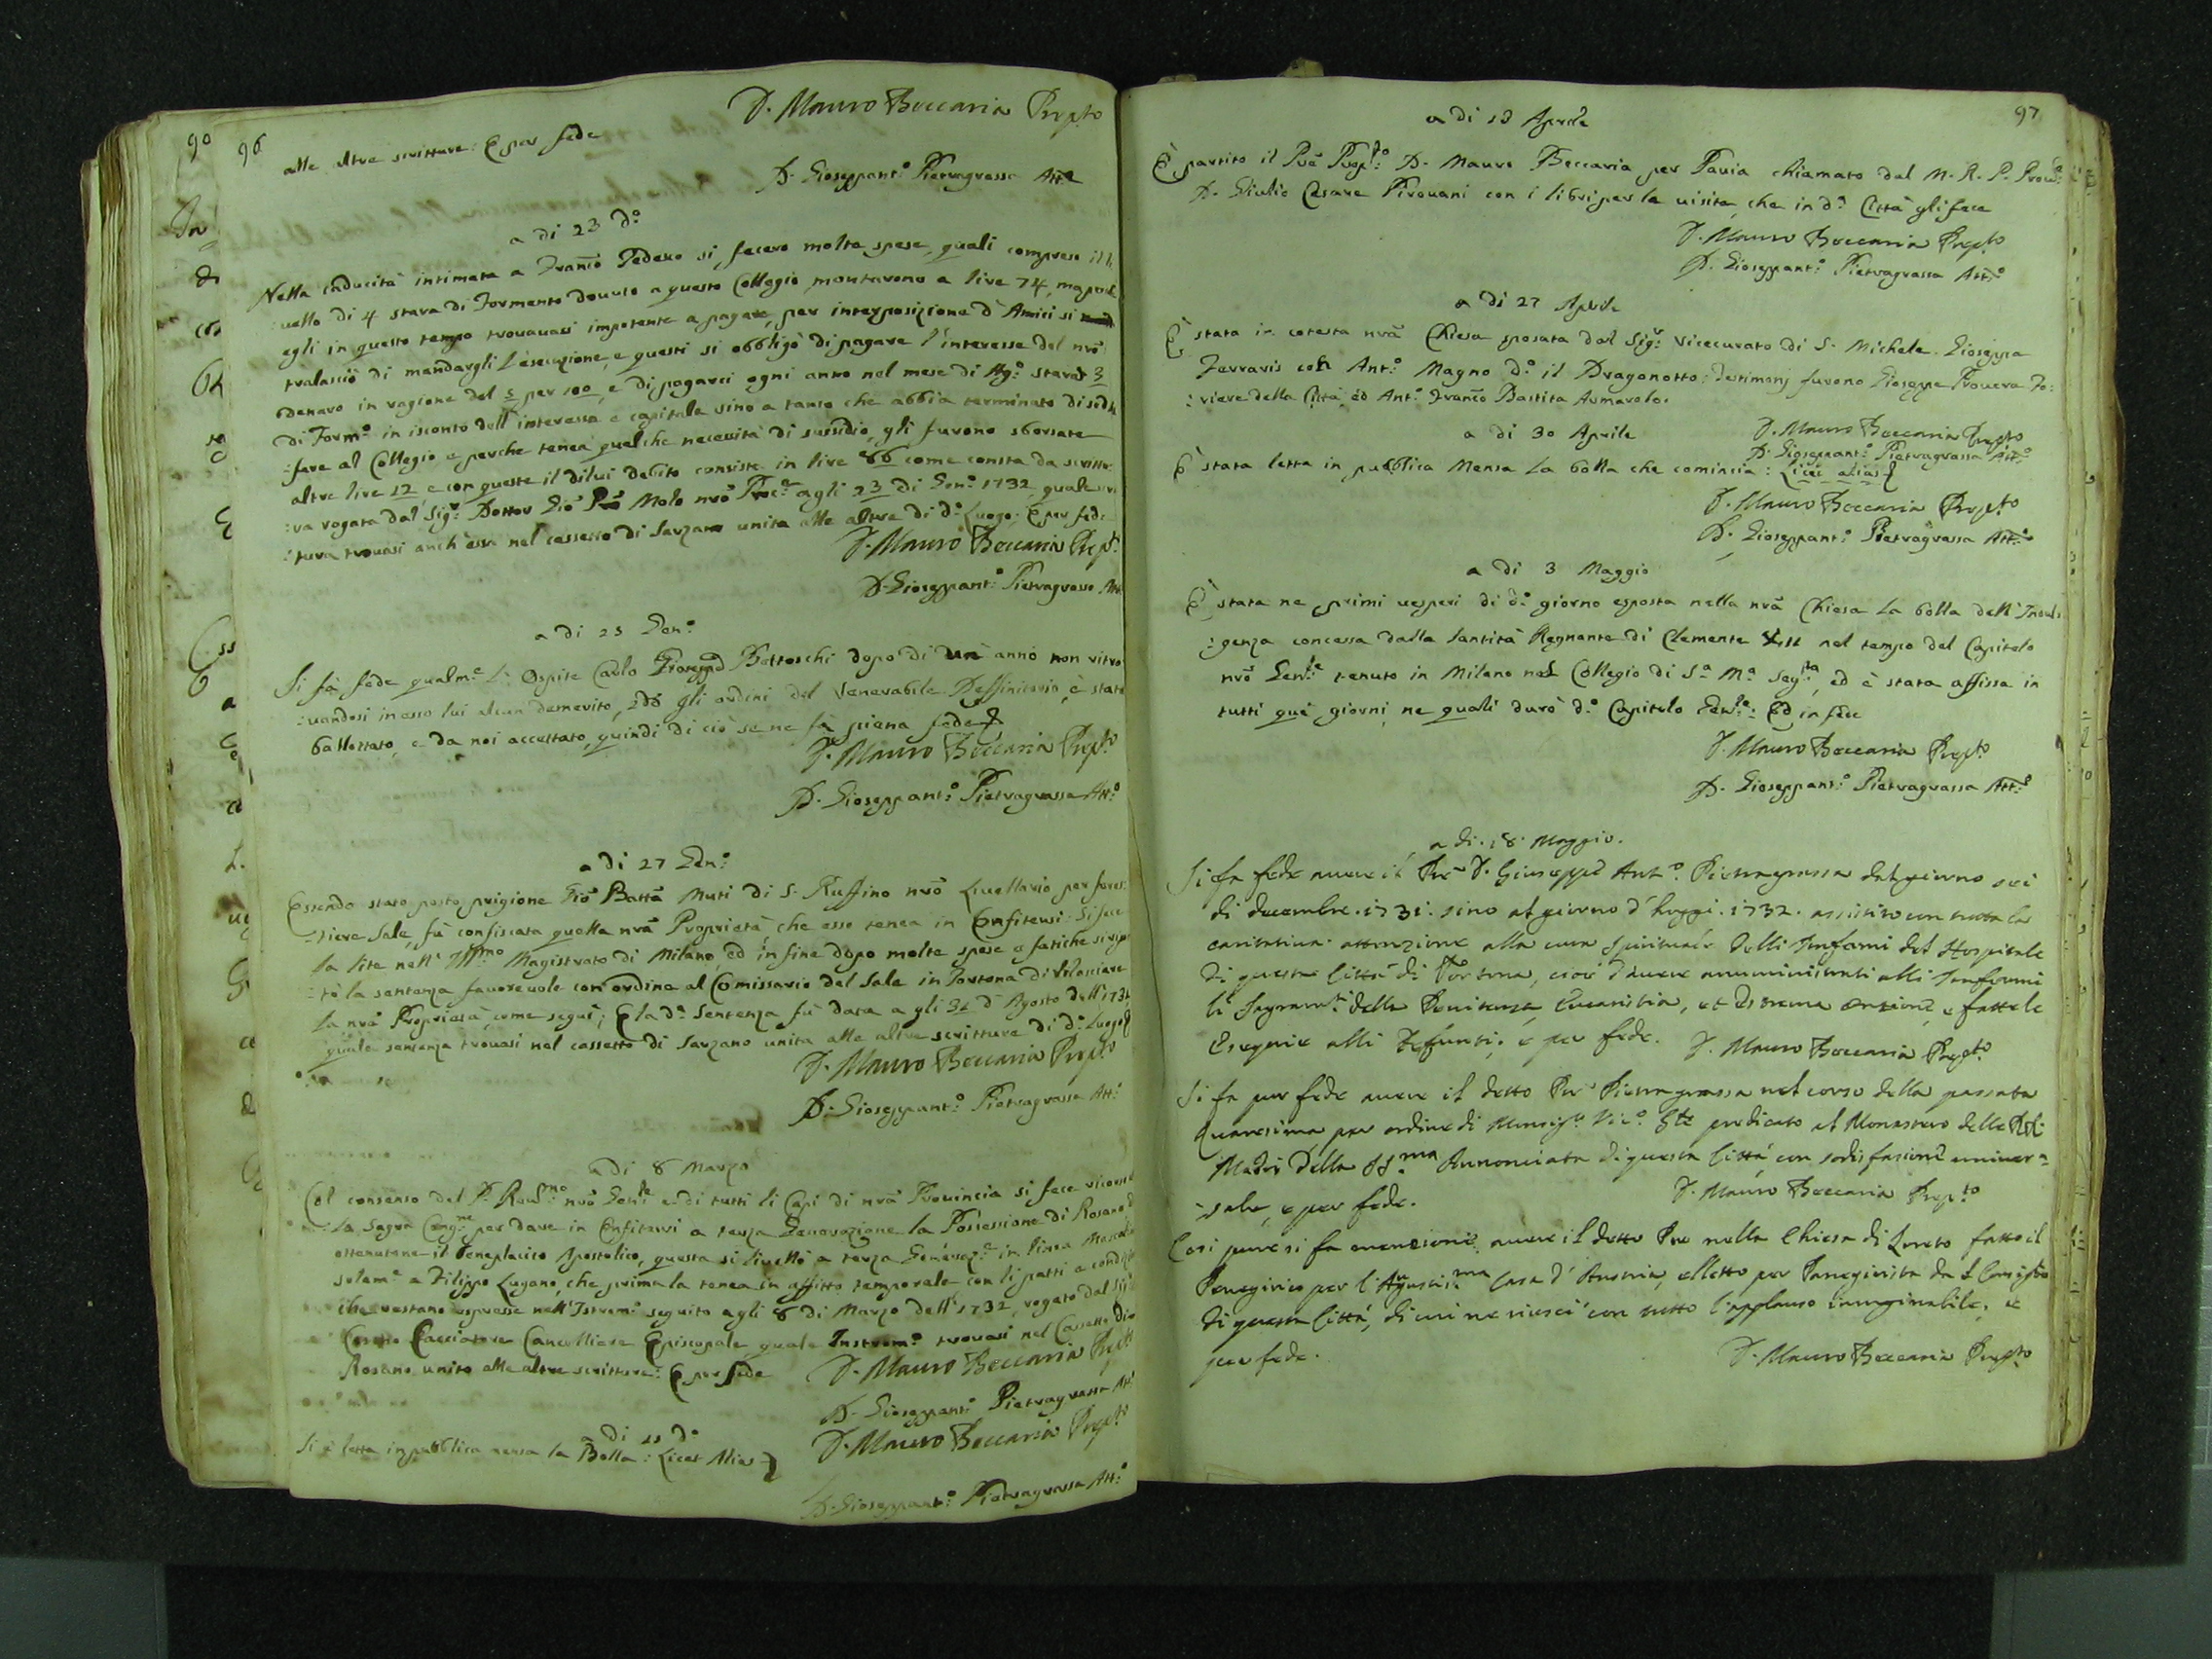 96
D. Mauro Beccaria Prep.to
alle altre scritture: E per fede
D. Gioseppant.o Pietragrassa Att.o
a di 23 d.o
Nella caducità intimata a Franco Pedexo si fecero molte spese, quali compreso il li
:uello di 4 stara di Formento douuto a questo Collegio montarono a lire 74, ma perche
egli in questo tempo trouauasi impotente a pagare, per interposizione d'Amici si
tralasciò di mandargli l'esecuzione, e questi si obbligò di pagare l'interesse del nrõ
denaro in ragione del 5 per 100, e di pagarci ogni anno nel mese di Ag.o stara 3
di Form.o in isconto dell'interesse e capitale sino a tanto che abbia terminato di sodis
:fare al Collegio, e perche tenea qualche necessità di sussidio, gli furono sborsate
altre lire 12, e con queste il dilui debito consiste in lire 86 come consta da scrittu
:ra rogata dal Sig.r Dottor Giõ Molo nrõ Proc.e agli 23 di Gen.o 1732, quale scri
:tura trouasi anch'essa nel cassetto di Sarzano unita alle altre di d.o Luogo: E per fede
D. Mauro Beccaria Prep.to
D. Gioseppant.o Pietragrassa Att.o
a di 25 Gen.o
Si fà fede qualm.e l'Ospite Carlo Gioseppe Bottoschi dopo di un anno non ritro
:uandosi in esso lui alcun demerito, gli ordini del Venerabile Deffinitorio, è stato
ballottato, e da noi accettato, quindi di ciò se ne fà piena fede
D. Mauro Beccaria Prep.to
D. Gioseppant.o Pietragrassa Att.o
a di 27 Gen.o
Essendo stato posto prigione Giõ Battã Muti di S. Ruffino nrõ Liuellario per fores:
:tiere Sale, fù confiscata quella nrã Proprietà che esso tenea in Enfiteusi: Si fece
la lite nell'Ill.mo Magistrato di Milano, ed in fine dopo molte spese e fatiche si ripor
:tò la sentenza fauoreuole con ordine al Comissario del Sale in Tortona di rilasciare
la nrã Proprietà, come seguì; E la d.a Sentenza fù data a gli 31 d'Agosto dell'1731
quale sentenza trouasi nel cassetto di Sarzano unita alle altre scritture di d.o Luogo
D. Mauro Beccaria Prep.to
D. Gioseppant.o Pietragrassa Att.o
a di 8 Marzo
Col consenso del P. Reud.mo nrõ Gen.le e di tutti li Capi di nrã Prouincia si fece ricorso
la Sagra Cong.ne per dare in Enfiteusi a terza Generazione la Possessione di Rosano
ottenutone il Beneplacito Apostolico, questa si liuellò a terza Generaz.e in linea Mascol
solam.e a Filippo Lugano, che prima la tenea in affitto temporale con li patti e condiz
che restano espresse nell'Istrom.o seguito agli 8 di Marzo dell'1732, rogato dal Sig.r
Cacciatore Cancelliere Episcopale quale Instrom.o trouasi nel Cassetto di
Rosano unito alle altre scritture: E per fede
D. Mauro Beccaria Prep.to
D. Gioseppant.o Pietragrassa Att.o
a di 11 d.o
Si è letta in pubblica mensa la Bolla: Licet Alias
D. Mauro Beccaria Prep.to
D. Gioseppant.o Pietragrassa Att.o
97
a di 13 Aprile
È partito il Prẽ Prep.to D. Mauro Beccaria per Pauia chiamato dal M. R. P. Prou.le
D. Giulio Cesare Pirouani con i libri per la uisita, che in d.a Città gli fece
D. Mauro Beccaria Prep.to
D. Gioseppant.o Pietragrassa Att.o
a di 27 Aprile
È stata in cotesta nrã Chiesa sposata dal Sig.r Vicecurato di S. Michele Gioseppa
Ferraris con Ant.o Magno d.o il Dragonotto: Testimonj furono Gioseppe Prouera Fo:
:riere della Città, ed Ant.o Franco Bastita Armarolo.
D. Mauro Beccaria Prep.to
D. Gioseppant.o Pietragrassa Att.o
a di 30 Aprile
È stata letta in pubblica Mensa la bolla che comincia: Licet alias
D. Mauro Beccaria Prep.to
D. Gioseppant.o Pietragrassa Att.o
a di 3 Maggio
È stata ne primi uesperi di d.o giorno esposta nella nrã Chiesa la bolla dell'Indul
:genza concessa dalla Santità Regnante di Clemente XII nel tempo del Capitolo
nrõ Gen.le tenuto in Milano nel Collegio di S.a M.a Seg.ta, ed è stata affissa in
tutti quẽ giorni, ne quali durò d.o Capitolo Gen.le: Ed in fede
D. Mauro Beccaria Prep.to
D. Gioseppant.o Pietragrassa Att.o
a di. 18. Maggio.
Si fa fede auere il Prẽ D. Giuseppe Ant.o Pietragrassa dal giorno sei
di decembre. 1731. sino al giorno d'hoggi. 1732. assistito con tutta la
caritatiua attenzione alla cura spirituale delli Infermi del Hospitale
di questa Città di Tortona, cioè d'auere amministrati alli Infermi
li Sagram.ti della Penitenza, Eucaristia, et Estrema Onzione, e fatte le
Esequie alli Defunti; e per fede. D. Mauro Beccaria Prep.to
Si fa pur fede auere il detto Prẽ Pietragrassa nel corso della passata
Quaresima per ordine di Monsig.r Vic.o predicato al Monastero delle
Madri della SS.ma Annonciata di questa Città con sodisfazione uniuer=
=sale, e per fede.
D. Mauro Beccaria Prep.to
Cosi pure si fa menzione auere il detto Prẽ nella Chiesa di Loreto fatto il
Panegirico per l'Agustis.ma Casa d'Austria, eletto per Panegirista dal Consiglio
di questa Città, di cui ne riuscì con tutto l'applauso immaginabile, e
per fede.
D. Mauro Beccaria Prep.to